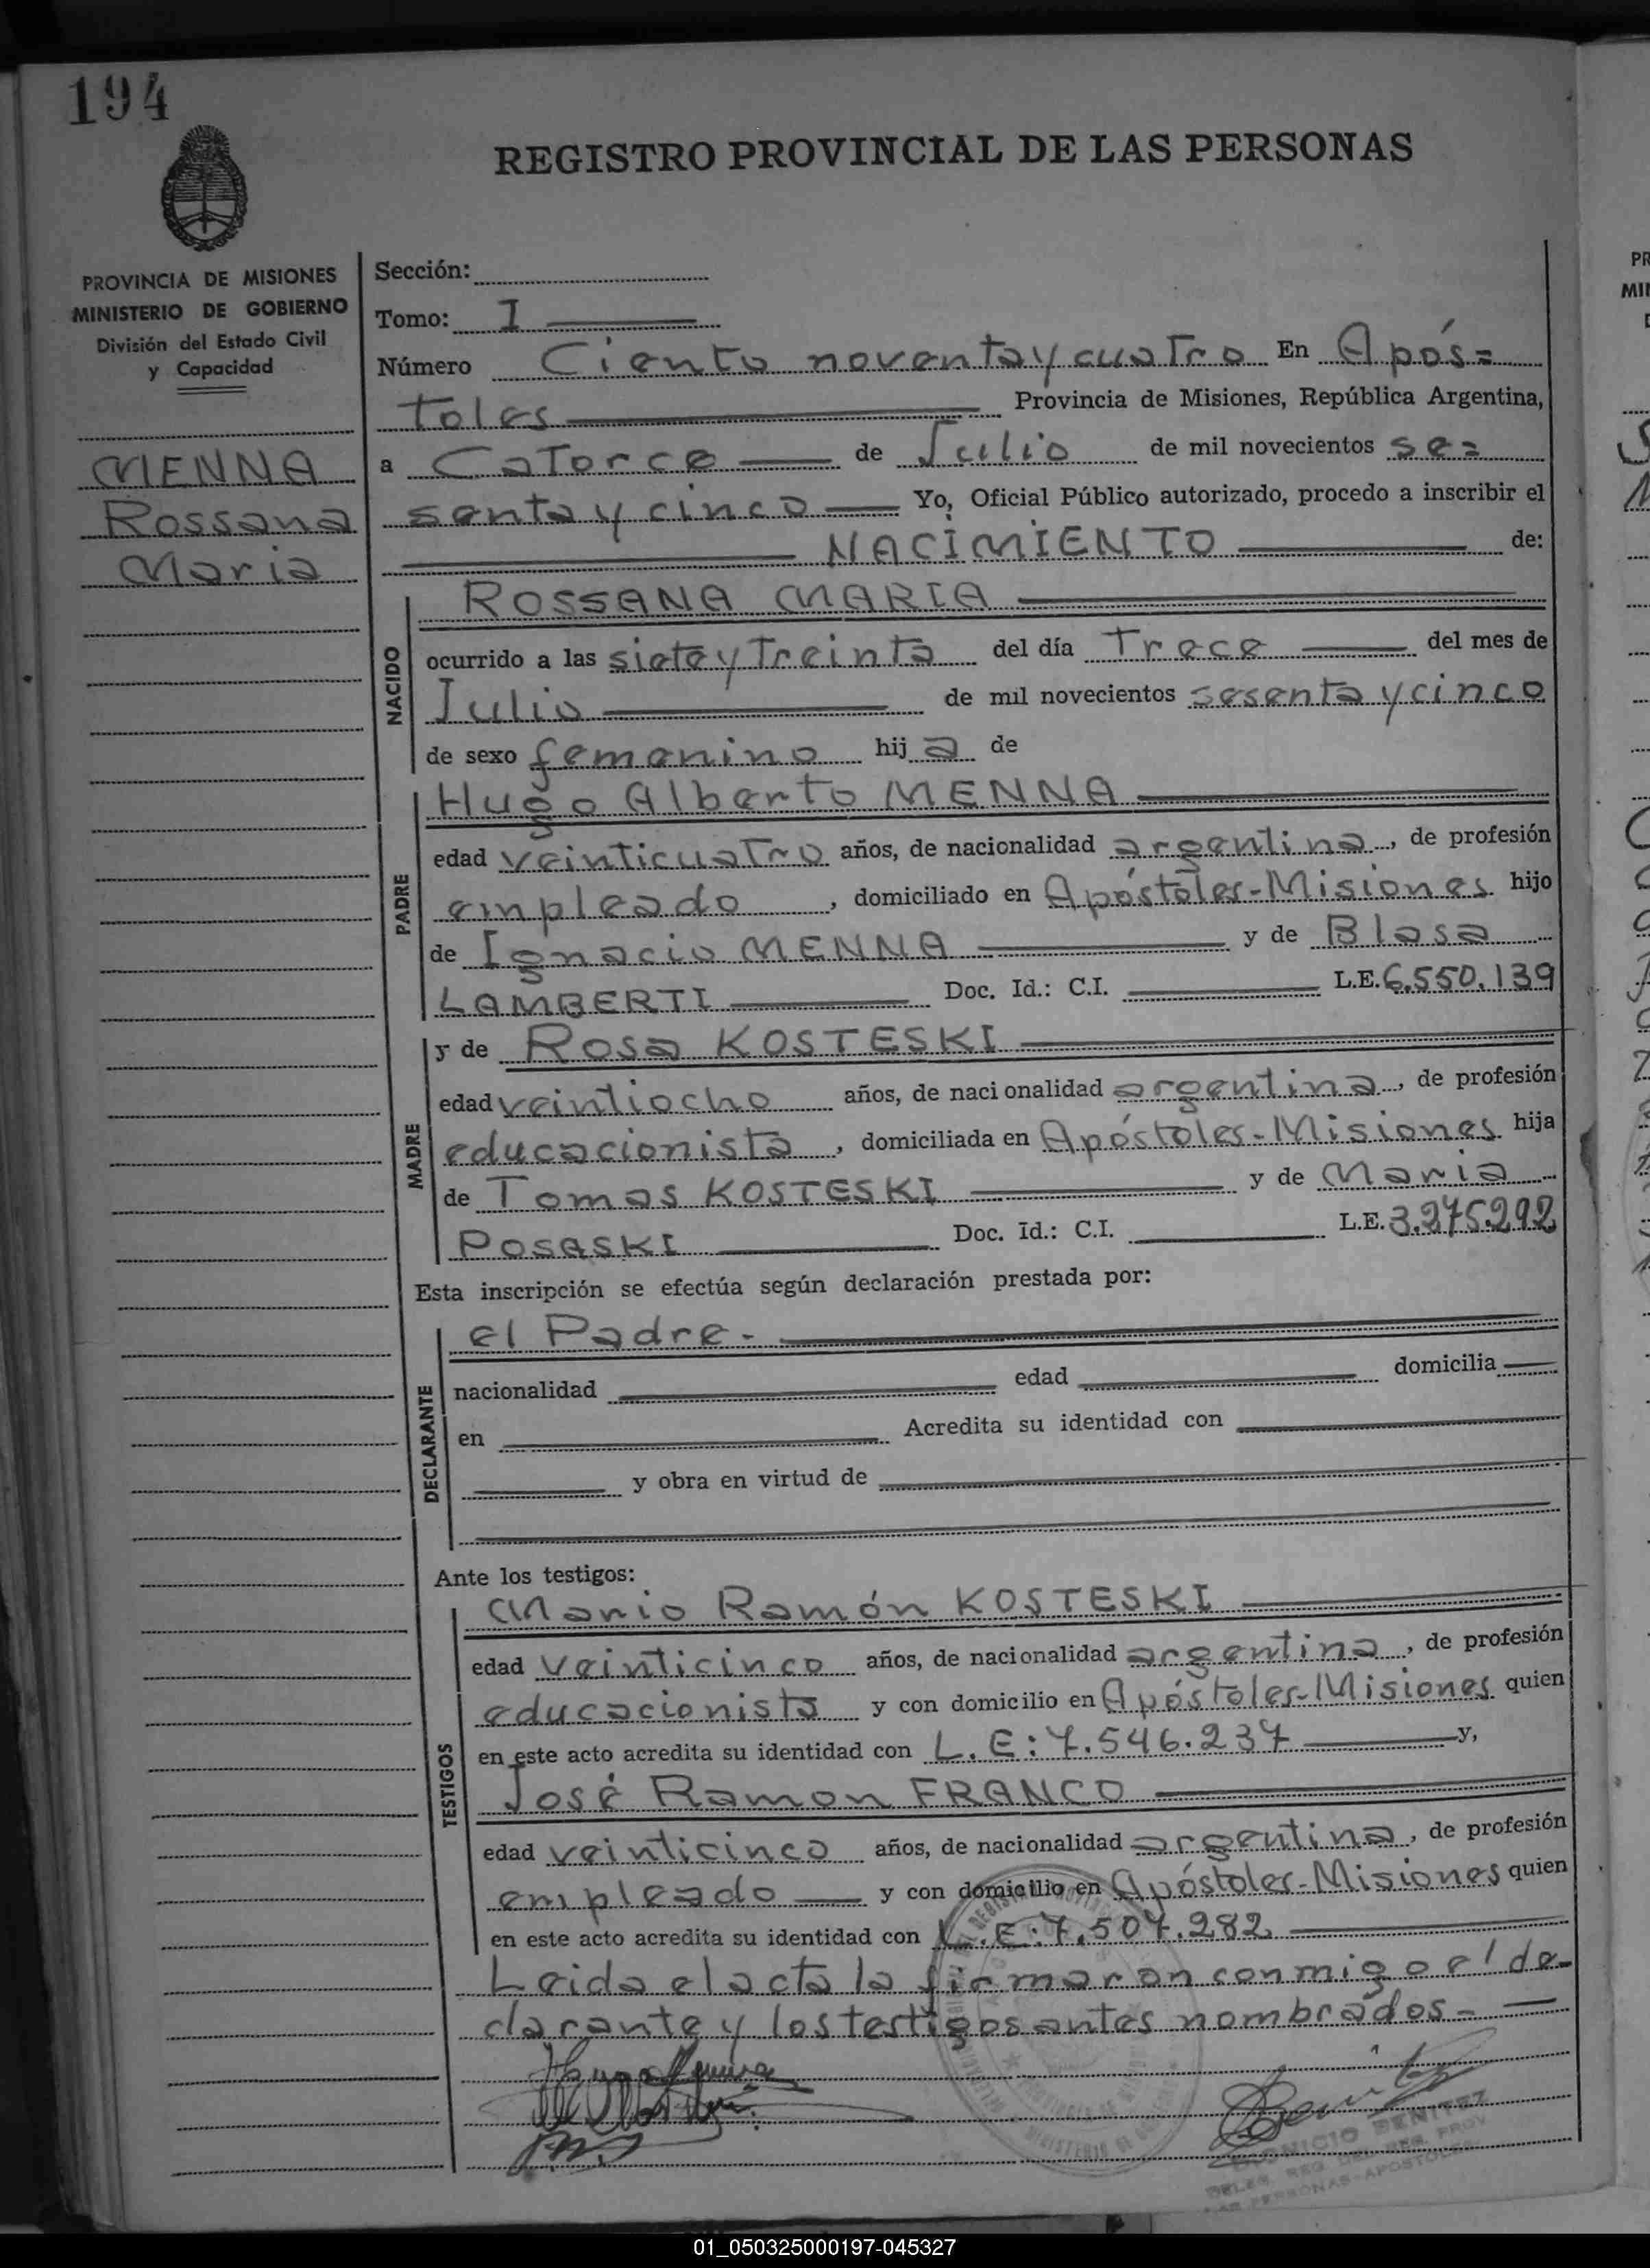 194
REGISTRO PROVINCIAL DE LAS PERSONAS
PROVINCIA DE MISIONES
MINISTERIO DE GOBIERNO
División del Estado Civil
y Capacidad
MENNA
Rossana
Maria
Sección:
Tomo: I
Número Ciento noventa y cuatro En Após=
toles Provincia de Misiones, República Argentina,
a Catorce de Julio de mil novecientos se=
senta y cinco Yo, Oficial Público autorizado, procedo a inscribir el
NACIMIENTO de:
NACIDO
ROSSANA MARIA
ocurrido a las siete y Treinta del día Trece del mes de
Julio de mil novecientos sesenta y cinco
de sexo femenino hij a de
PADRE
Hugo Alberto MENNA
edad veinticuatro años, de nacionalidad argentina, de profesión
empleado, domiciliado en Apóstoles-Misiones hijo
de Ignacio MENNA y de Blasa
LAMBERTI Doc. Id.: C.I. L.E. 6.550.139
MADRE
y de Rosa KOSTESKI
edad veintiocho años, de nacionalidad argentina, de profesión
educacionista, domiciliada en Apóstoles-Misiones hija
de Tomas KOSTESKI y de Maria
POSASKI Doc. Id.: C.I. L.E. 3.275.292
Esta inscripción se efectúa según declaración prestada por:
DECLARANTE
el Padre.-
nacionalidad edad domicilia
en Acredita su identidad con
y obra en virtud de
Ante los testigos:
TESTIGOS
Mario Ramón KOSTESKI
edad veinticinco años, de nacionalidad argentina, de profesión
educacionista y con domicilio en Apóstoles-Misiones quien
en este acto acredita su identidad con L.E: 7.546.237 y,
José Ramon FRANCO
edad veinticinco años, de nacionalidad argentina, de profesión
empleado y con domicilio en Apóstoles-Misiones quien
en este acto acredita su identidad con L.E: 7.507.282
Leida el acta la firmaron conmigo el de-
clarante y los testigos antes nombrados=
BENITEZ
01_050325000197-045327